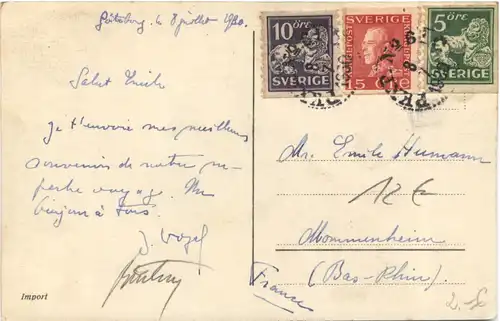 Göteborg le 8 juillet 1930.
Salut Emile
Je t'envoie mes meilleurs
souvenirs de notre
voyage. Un
bonjour à tous.
J. Vogel
10 ÖRE
SVERIGE
SVERIGE
15 ÖRE
5 ÖRE
SVERIGE
Mr. Emile Humann
12 €
Mommenheim
(Bas-Rhin)
France
2.50
Import